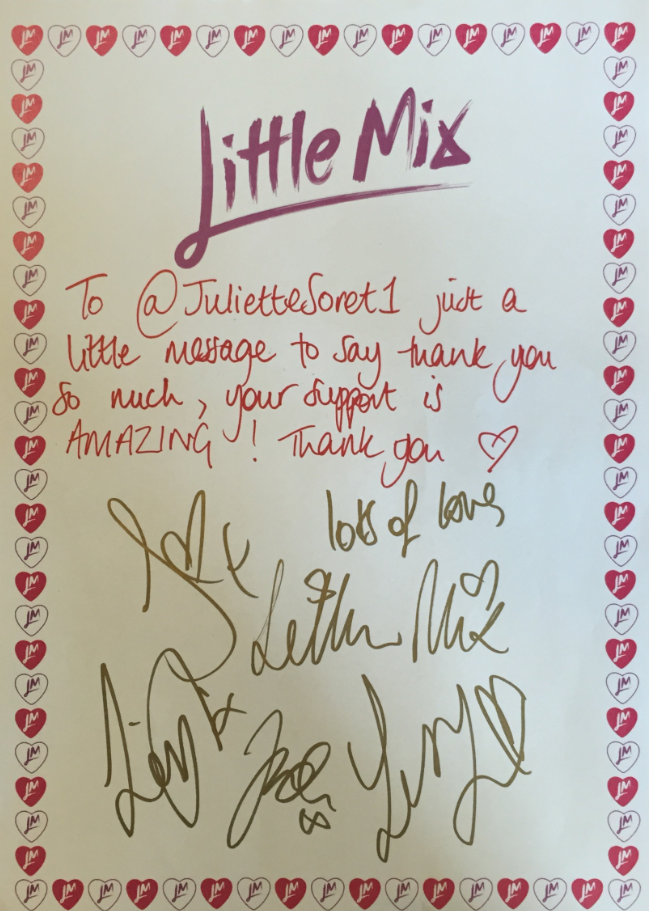 Little Mix
To @JulietteSoret1 just a
little message to say thank you
so much, your support is
AMAZING! Thank you ♡
lots of love
Little Mix